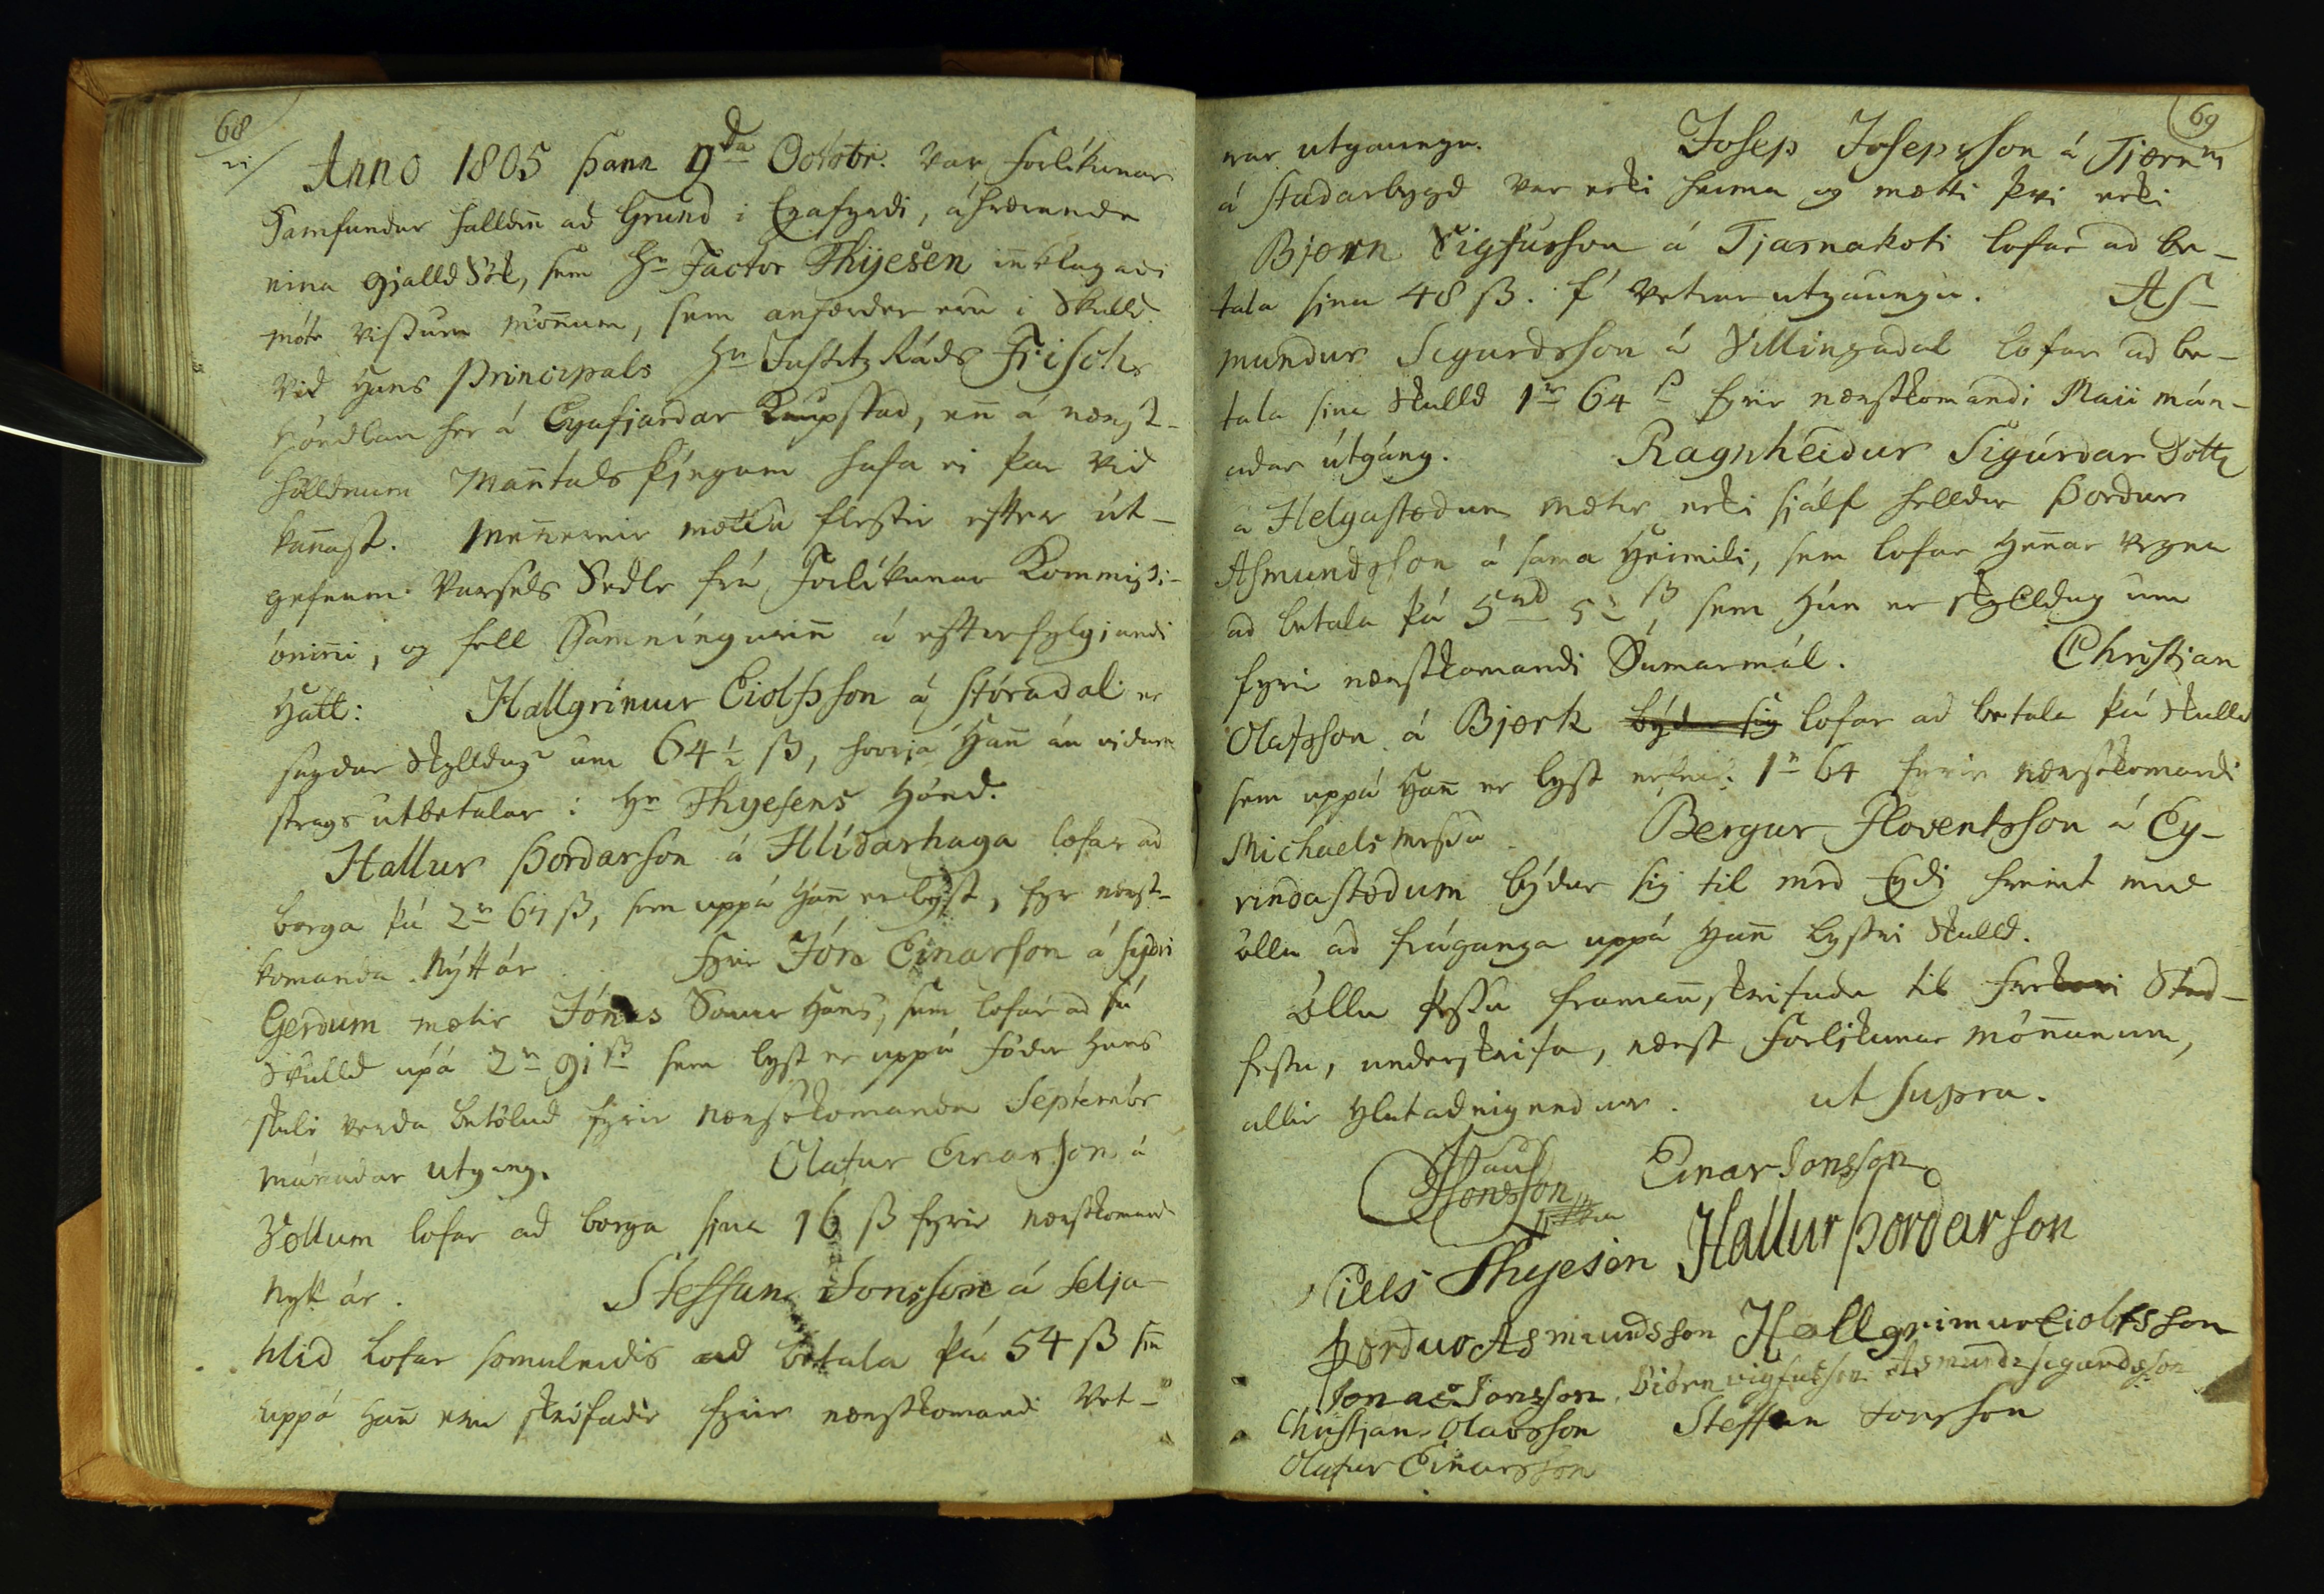 68
Anno 1805 þann 9da Octobr. var Forlíkunar
Samfundur halldiñ ad Grund i Eyafyrdi, áhrærande
eina gjalld Sök, sem Hr Factor Thyesen iñklagadi
móte vissum mönnum, sem anfærder eru i Skulld
vid Hans Principals Hr Justitz Ráds Frischs
Höndlun her á Eyafjardar Kaupstad, eñ á næst-
hölldnum Mañtals þingum hafa ei þar vid
kañast. Meñerner mættu flestir efter út-
gefnum Varsels Sedle frá Forlíkunar Kommissi-
óniñi, og fell Samníngurinn á efterfylgjandi
Hátt: Hallgrímur Eiolfsson á Stóradal er
sagdur Skylldugr um 64½ ß, hvorja Hañ án vidurm
strags utbetalar i Hr Thyesens Hönd.
Hallur Þordarson á Hlídarhaga lofar ad
borga þá 2r 67 ß, sem uppá Hañ er lyst, fyr næst-
komanda Nýtt ár. Fyrir Jón Einarson á Sydri
Gerdum mætir Jónas Sonur Hans, sem lofar ad sú
Skulld upá 2r 91 ß sem lyst er uppá födur Hans
skule verda betölud fyrir næstkomanda Septembr
mánadar utgang. Olafur Einarson á
Vøllum lofar ad borga sína 16 ß fyrir næstkomand
Nytt ár. Steffan Jonsson á Selja-
hlid lofar somuleidis ad betala þá 54 ß sem
uppá Hañ eru skrifadir fyrir næstkomandi Vet-
69
rar utgaungu. Josep Josepsson á Tjørnm
á Stadarbygd var ecki heima og mætti þvi ecki
Bjørn Sigfússon á Tjarnakoti lofar ad be-
tala sína 48 ß. f' Vetrar utgaungu. As-
mundur Sigurdsson á Villingadal lofar ad be-
tala sina Skulld 1r 64 ß fyrir næstkomandi Maii mán-
adar útgáng. Ragnheidur Sigúrdar Dotter
á Helgastødum mætir ecki sjálf helldur Þordur
Asmundsson á sama Heimili, sem lofar Heñar vegna
ad betala þá 5rd 5½ ß, sem Hún er skylldug um
fyrir næstkomandi Sumarmál. Christjan
Olafsson á Bjørk býdur sig lofar ad betala þá Skulld
sem uppá Hañ er lyst nefnil: 1r 64 fyrir næstkomandi
Michaels Messu. Bergur Floventsson á Ey-
vindastødum býdur sig til med Eydi hreint med
öllu ad fráganga uppá Hañ lystri Skulld.
Öllu þessu framañskrifudu til frekari Stad-
festu, underskrifa, næst Forlikunar mönnunum,
allir Hlutadeigendur. ut supra.
Paul
Jonsson Einar Jonsson
Niels Thyesen Hallur Þordarson
Þordur Asmundsson Hallgrimur Eiolfsson
Jonas Jonsson Biörn vigfusson Asmundr sigurdsson
Christjan Olavsson Steffan Jonsson
Olafur Einarsson